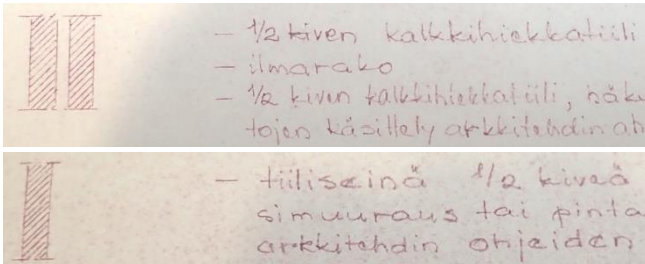 - 1/2 kiven kalkkihiekkatiili
- ilmarako
- 1/2 kiven kalkkihiekkatiili, näky
tojen käsittely arkkitehdin oh
- tiiliseinä 1/2 kiveä
simuuraus tai pinta
arkkitehdin ohjeiden